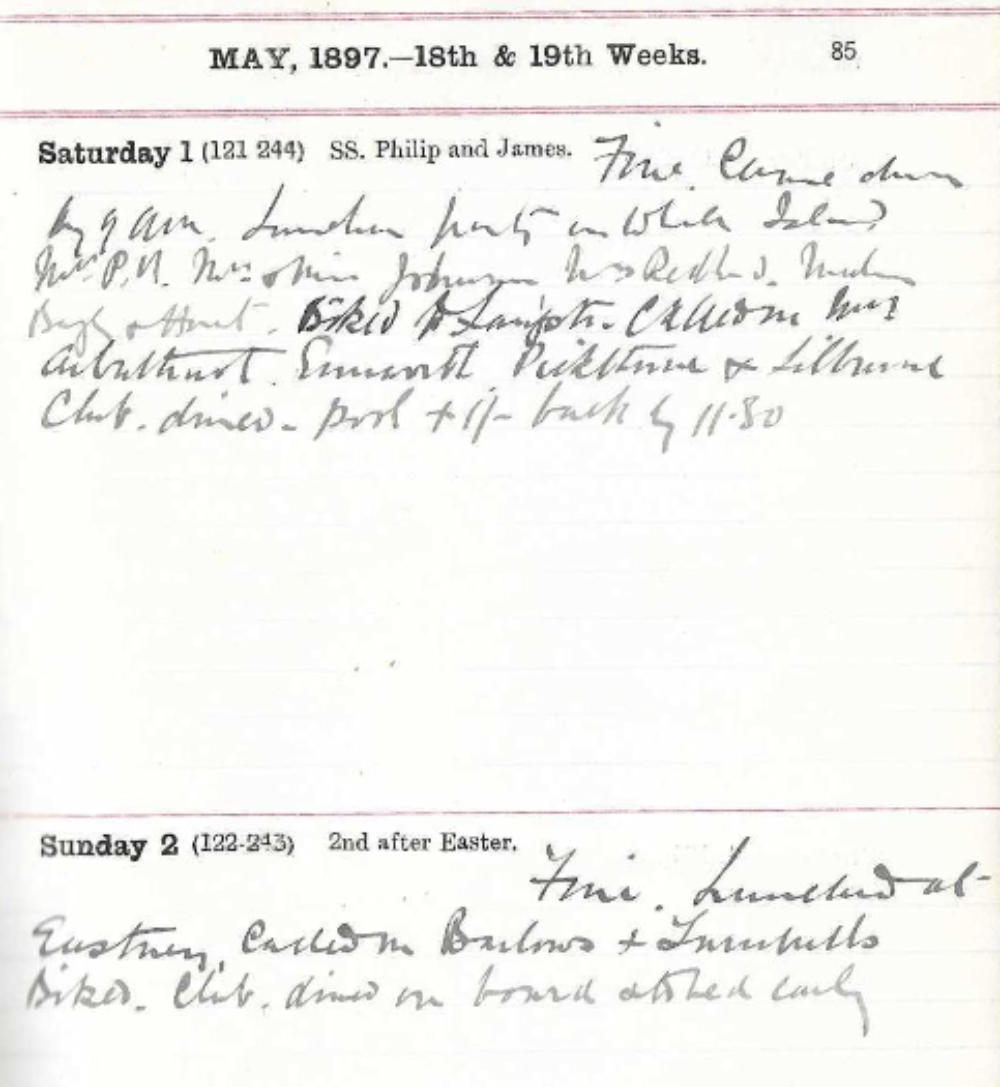 MAY, 1897.—18th & 19th Weeks. 85
Saturday 1 (121 244) SS. Philip and James. Fine. Came down
by 9 am. Luncheon party on Whale Island
Mrs P.H. Mrs & Miss Johnson
& Hunt. Biked to Called on Mrs
Arbuthnot. Emsworth. Pickthorne &
Club. dined - pool + 1/- back by 11.30
Sunday 2 (122-243) 2nd after Easter.
Fine. Lunched at
Eastney, Called on Barlows + Turnbulls
Biked. Club. dined on board early